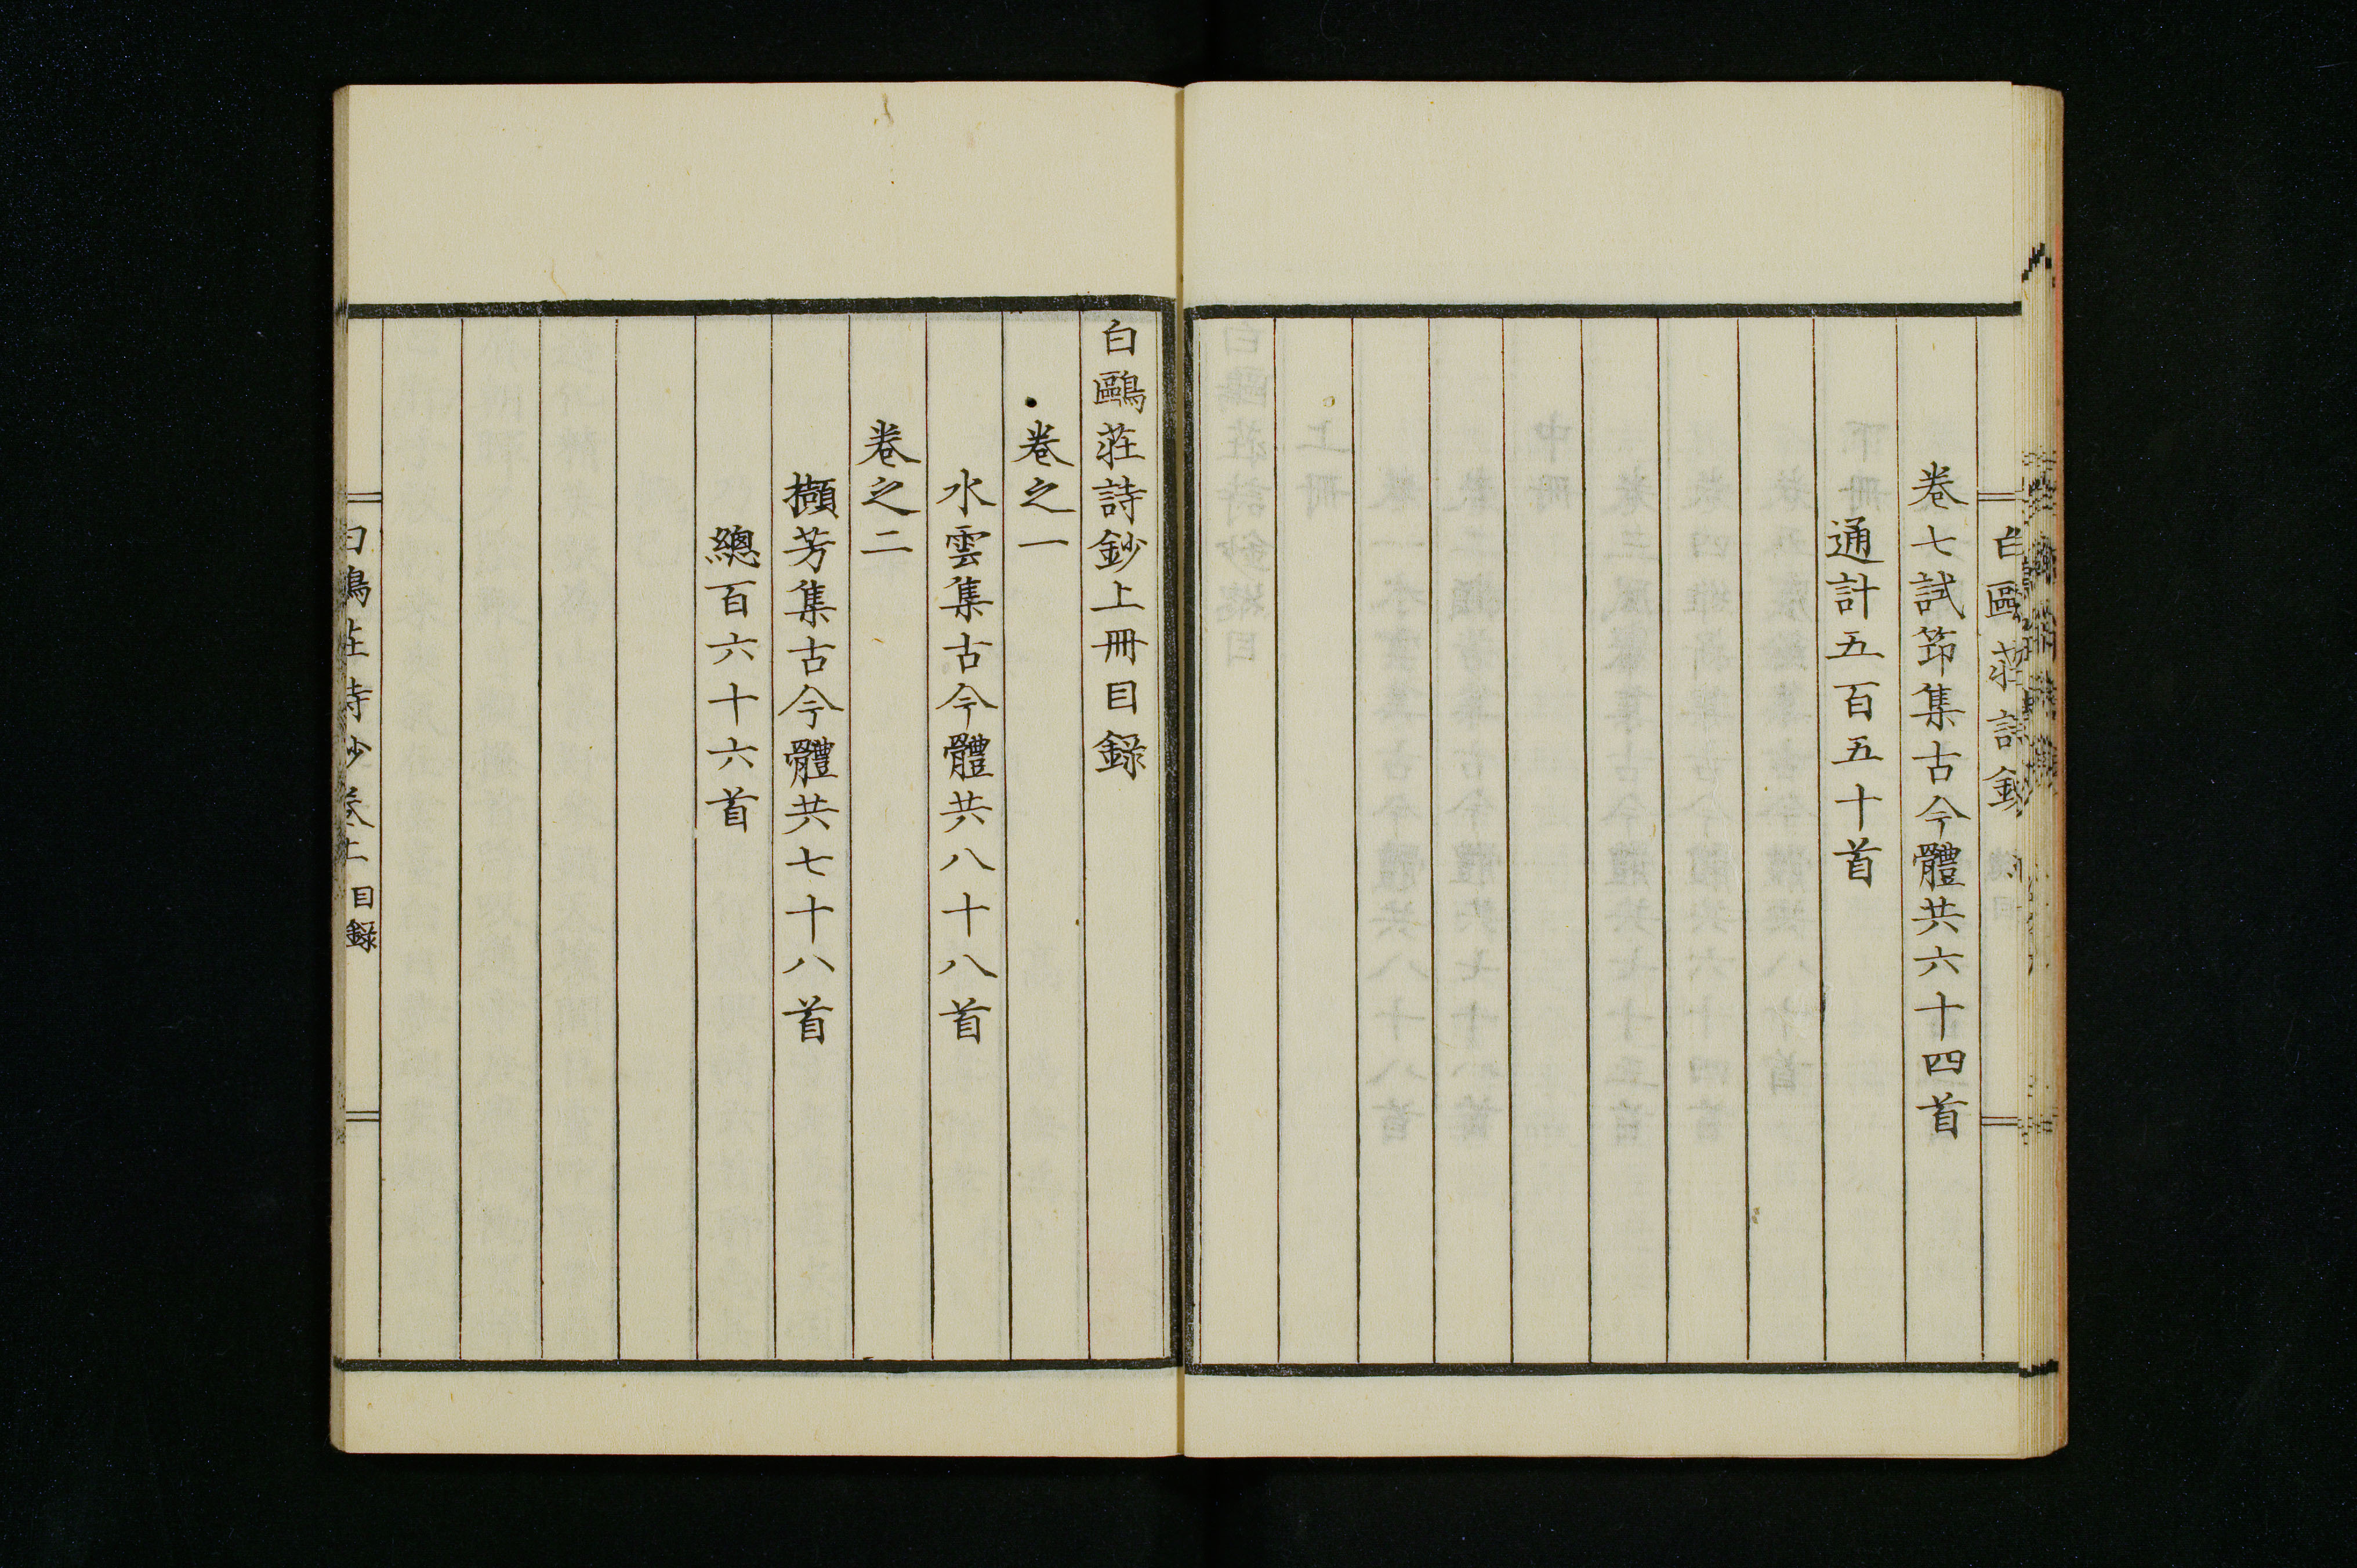 白鷗莊詩鈔
卷七試笻集古今體共六十四首
通計五百五十首
白鷗莊詩鈔上冊目錄
卷之一
水雲集古今體共八十八首
卷之二
擷芳集古今體共七十八首
總百六十六首
白鷗莊詩鈔卷上 目錄